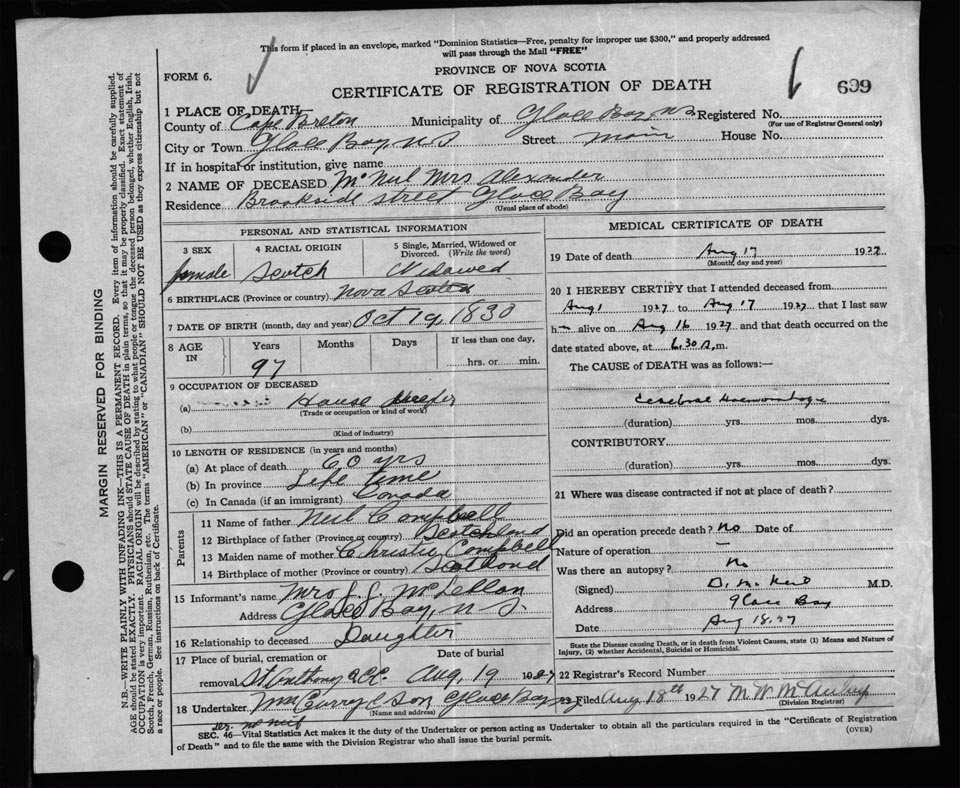 This form if placed in an envelope, marked "Dominion Statistics—Free, penalty for improper use $300," and properly addressed
will pass through the Mail "FREE"
FORM 6.
PROVINCE OF NOVA SCOTIA
CERTIFICATE OF REGISTRATION OF DEATH
699
1 PLACE OF DEATH—
County of Cape Breton Municipality of Glace Bay N S Registered No.
(For use of Registrar General only)
City or Town Glace Bay N S Street Main House No.
If in hospital or institution, give name
2 NAME OF DECEASED McNeil Mrs Alexander
Residence Brookside street Glace Bay
(Usual place of abode)
PERSONAL AND STATISTICAL INFORMATION
3 SEX 4 RACIAL ORIGIN 5 Single, Married, Widowed or Divorced. (Write the word)
female Scotch Widowed
6 BIRTHPLACE (Province or country) Nova Scotia
7 DATE OF BIRTH (month, day and year) Oct 19, 1830
8 AGE IN Years Months Days If less than one day,
97 hrs. or min.
9 OCCUPATION OF DECEASED
(a) House Keeper
(Trade or occupation or kind of work)
(b)
(Kind of industry)
10 LENGTH OF RESIDENCE (in years and months)
(a) At place of death 60 yrs
(b) In province Life time
(c) In Canada (if an immigrant) Canada
Parents
11 Name of father Neil Campbell
12 Birthplace of father (Province or country) Scotchland
13 Maiden name of mother Christy Campbell
14 Birthplace of mother (Province or country) Scotland
15 Informant's name Mrs J. J. McLellan
Address Glace Bay, N S.
16 Relationship to deceased Daughter
17 Place of burial, cremation or Date of burial
removal St Anthony Aug. 19 1927
18 Undertaker Curry & Son Glace Bay
(Name and address)
MEDICAL CERTIFICATE OF DEATH
19 Date of death Aug 17 1927
(Month, day and year)
20 I HEREBY CERTIFY that I attended deceased from
Aug 1 1927 to Aug 17 1927 that I last saw
h alive on Aug 16 1927 and that death occurred on the
date stated above, at 6.30 a, m.
The CAUSE of DEATH was as follows:—
Cerebral Haemorrhage
(duration) yrs. mos. dys.
CONTRIBUTORY
(duration) yrs. mos. dys.
21 Where was disease contracted if not at place of death?
Did an operation precede death? no Date of
Nature of operation —
Was there an autopsy? No
(Signed) M.D.
Address Glace Bay
Date Aug 18.27
State the Disease causing Death, or in death from Violent Causes, state (1) Means and Nature of
Injury, (2) whether Accidental, Suicidal or Homicidal.
22 Registrar's Record Number
23 Filed Aug 18th 1927 M. W. McAulay
(Division Registrar)
SEC. 46—Vital Statistics Act makes it the duty of the Undertaker or person acting as Undertaker to obtain all the particulars required in the "Certificate of Registration
of Death" and to file the same with the Division Registrar who shall issue the burial permit.
(OVER)
MARGIN RESERVED FOR BINDING
N.B.—WRITE PLAINLY WITH UNFADING INK—THIS IS A PERMANENT RECORD. Every item of information should be carefully supplied.
AGE should be stated EXACTLY. PHYSICIANS should STATE CAUSE OF DEATH in plain terms, so that it may be properly classified. Exact statement of
OCCUPATION is very important. RACIAL ORIGIN will be described by stating to what people or tongue the deceased person belonged, whether English, Irish,
Scotch, French, German, Russian, Ruthenian, etc. The terms "AMERICAN" or "CANADIAN" SHOULD NOT BE USED as they express citizenship but not
a race or people. See instructions on back of Certificate.